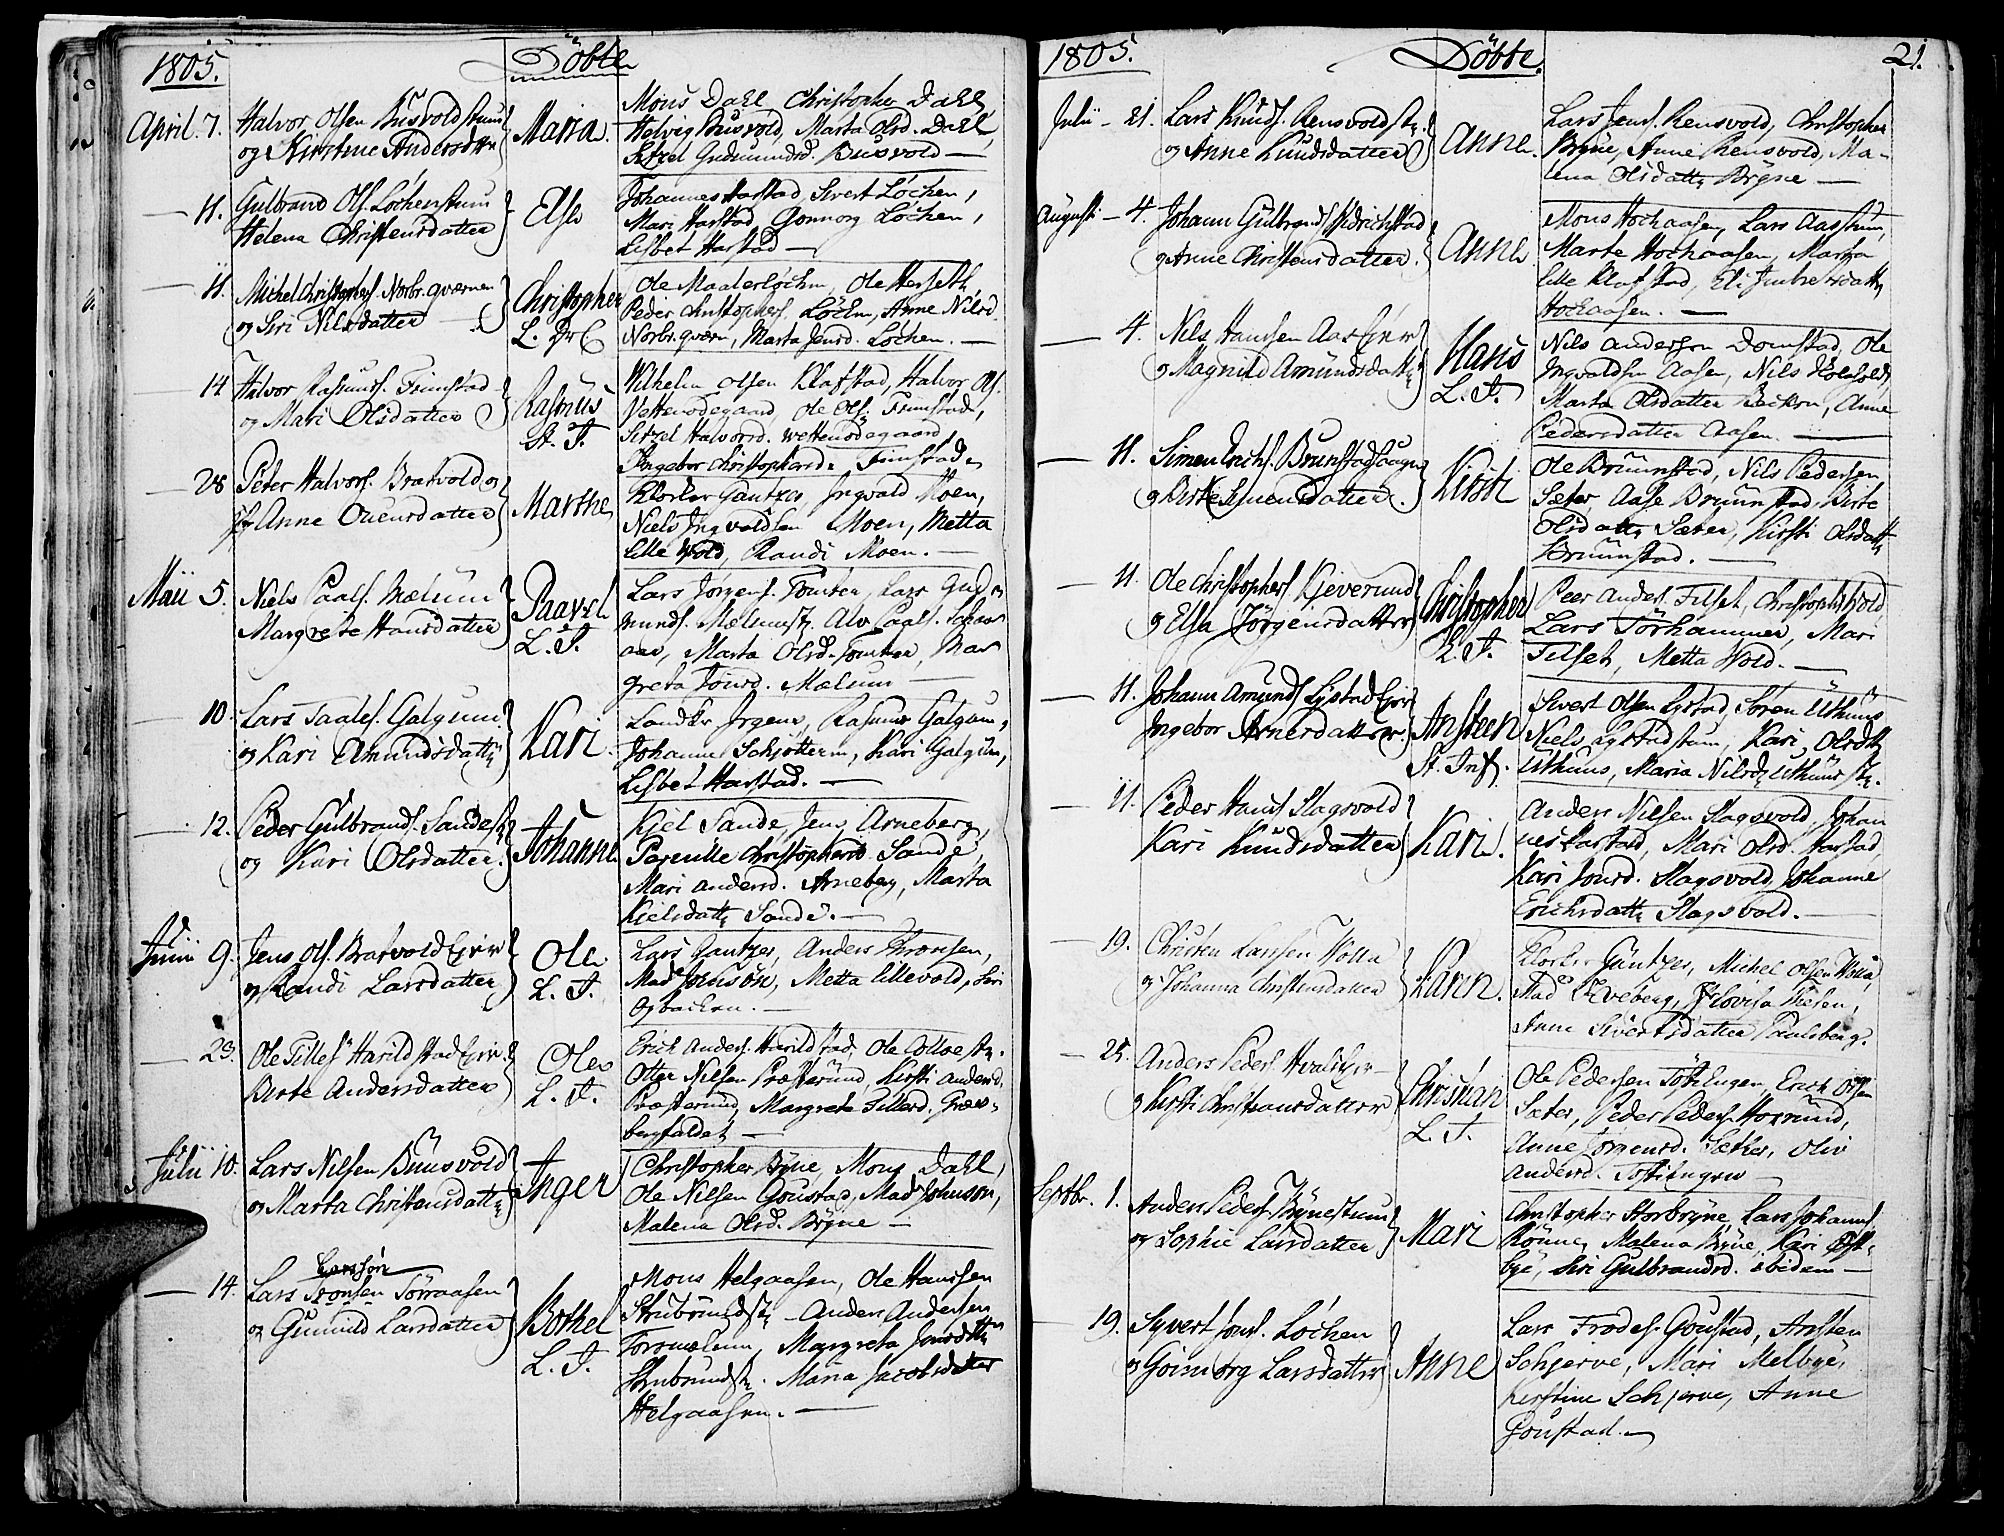 1805. Döbte
April. 7. Halvor Olsen Busvoldstuen
og Kirstine Andersdtr
Maria.
Mons Dahl, Christopher Dahl,
Helvig Busvold, Marta Olsd. Dahl,
Sitzel Gudmundsd. Busvold —
— 11. Gulbrand Ols. Löchenstuen
Helena Christensdatter
Else
Johannes Harstad, Sivert Löchen,
Mari Harstad, Gonnorg Löchen,
Lisbet Harstad —
— 11. Michel Christophers. Norbr. qværnen
og Siri Nilsdatter
Christopher
Ole Maalerlöchn, Ole Herseth,
Peder Christophers. Löchn, Anne Nilsd.
Norbr. qværn, Marta Jensd. Löchen. —
14 Halvor Rasmuss. Finnstad
og Mari Olsdatter
Rasmus
St. T.
Wilhelm Olsen Klafstad, Halvor Ols.
Vettenödegaard, Ole Ols. Finnstad,
Sitzel Halvorsd. Wettenödegaard,
Ingebor Christophersd. Finnstad.
— 28 Peter Halvors. Bratvold og
Anne Evensdatter
Marthe
Klocker Gantzes, Ingvald Moen,
Niels Ingvoldsen Moen, Metta
Lille Wold, Randi Moen. —
Maii 5. Niels Paals. Mælum
Margrete Hansdatter
Paavel
L. T.
Lars Jörgens. Tomter, Lars Gud-
munds. Mælumst. Alv Paals.
Marta Olsd. Tomter, Mar
greta Jonsd. Mælum —
— 10. Lars Taales. Galgum
og Kari Amundsdattr
Kari.
Rasmus Galgum,
Johannes Kari Galgum,
Lisbet Harstad. —
— 12. Peder Gulbrands. Sandest.
og Kari Olsdatter.
Johanne
Kiel Sande, Jens Arneberg,
Pernille Christophersd. Sande,
Mari Andersd. Arneberg, Marta
Kielsdattr Sande. —
Junii 9. Jens Ols. Bratvold Eier
og Randi Larsdatter
Ole
L. T.
Lars Gantzes, Anders Thronsen,
Mad. Jonsson, Metta Lillevold, Siri
Ogbacken. —
— 23. Ole Tilles Harildstad Eier.
Birte Andersdatter
Ole
L. T.
Erich Anders. Harildstad, Ole
Otter Nilsen Præsterund, Kirsti Andersd.
Præsterund, Margrete Tillesd. Græs-
bergfaldet —
Julii 10. Lars Nilsen Buusvold
og Marta Christensdattr
Inger
Christopher Bryne, Mons Dahl,
Ole Nilsen Goustad, Mad. Johnson,
Malena Olsd. Bryne —
— 14. Larssön
Lars Tronsen Törraasen
og Gunnild Larsdatter
Bothel
L. T.
Mons Helgaasen, Ole Hanssen
Anders Andersen
Torsmælum, Margreta Jonsdtr
Maria Jacobsdatter
Helgaasen. —
1805. Döbte. 21.
Julii — 21. Lars Knuds. Rensvoldst.
og Anne Knudsdatter
Anne.
Lars Jens. Rensvold, Christopher
Bryne, Anne Rensvold, Ma-
lena Olsdattr Bryne —
Augusti — 4. Johann Gulbrands.
og Anne Christensdatter.
Anne
Mons Hochaasen, Lars Aasstuen,
Marte Hochaasen, Marta
Lille Klafstad, Eli
Hochaasen. —
— 4. Nils Hanssen Aas Eier
og Magnild Amundsdattr
Hans
L. T.
Nils Andersen Domstad, Ole
Ingvoldsen Aasen, Nils
Marta Olsdatter Backen, Anne
Pedersdatter Aasen. —
— 11. Simen Erichs. Brunstadhaugen
og Birte Simensdatter.
Kirsti
Ole Bruunstad, Nils Pedersen
Sæter, Aase Bruunstad, Birte
Olsdattr Sæter, Kirsti Olsdattr
Bruunstad. —
— 11. Ole Christophers. Kjeverund
og Elsa Jörgensdatter
Christopher
L. T.
Peer Anders. Tilset, Christopher Wold,
Lars Törhammer, Mari
Tilset, Metta Wold. —
— 11. Johann Amunds. Lystad Eier
Ingebor Arnesdatter
Ansteen
Sivert Olsen Lystad, Sören Uthuus
Niels Lystadstuen, Kari Olsdtr
Uthuus, Maria Nilsd. Uthuusst.
— 11. Peder Hans. Slagsvold
Kari Knudsdatter
Kari.
Anders Nilsen Slagsvold, Johan
nes Harstad, Mari Olsd. Harstad,
Kari Jonsd. Slagsvold, Johanne
Erichsdattr Slagsvold. —
— 19. Christen Larssen Wolla
og Johanna Christensdatter
Karen.
Klocker Gantzes, Michel Olsen Wolla,
Mad. Hveberg,
Anne Sivertsdatter Paulsberg.
— 25. Anders Peders. Eier
og Kirsti Christiansdatter
Christian
L. T.
Ole Pedersen Töstiengen, Erich Olsen
Sæter, Peder Peders.
Anne Jörgensd. Sæther, Oliv
Andersd. Tostiengen
Septbr. 1. Anders Peders. Brynestuen
og Sophie Larsdatter
Mari
Christopher Storbryne, Lars Johanns.
Rönne, Malena Bryne, Kari Öst-
bye, Siri Gulbrandsd. ibidem —
— 19. Syvert Jons. Löchen
og Goinorg Larsdatter
Anne
Lars Frodes. Goustad, Arsten
Schjerve, Mari Melbye,
Kerstine Schjerve, Anne
Goustad. —